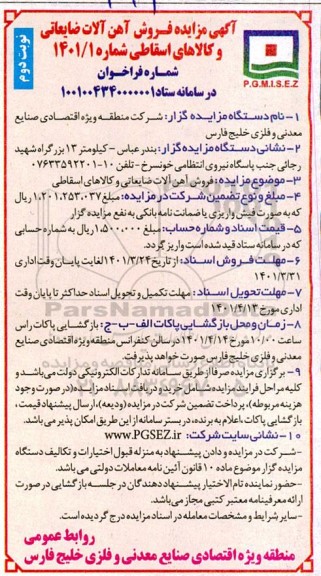 آگهی مزایده فروش آهن آلات ضایعاتی
و کالاهای اسقاطی شماره ۱۴۰۱/۱
نوبت دوم
شماره فراخوان
در سامانه ستاد ۱۰۰۱۰۰۴۳۴۰۰۰۰۰۰۱
P.G.M.I.S.E.Z
۱- نام دستگاه مزایده گزار: شرکت منطقه ویژه اقتصادی صنایع
معدنی و فلزی خلیج فارس
۲- نشانی دستگاه مزایده گزار: بندرعباس - کیلومتر ۱۳ بزرگراه شهید
رجائی جنب پاسگاه نیروی انتظامی خونسرخ - تلفن ۱۰-۰۷۶۳۳۵۹۲۲۰۱
۳- موضوع مزایده: فروش آهن آلات ضایعاتی و کالاهای اسقاطی
۴- مبلغ و نوع تضمین شرکت در مزایده: مبلغ ۱,۲۰۱,۲۵۳,۰۳۷ ریال
که به صورت فیش واریزی یا ضمانت نامه بانکی به نفع مزایده گزار
۵- قیمت اسناد و شماره حساب: مبلغ ۱,۵۰۰,۰۰۰ ریال به شماره حسابی
که در سامانه ستاد قید شده است واریز گردد.
۶- مهلت فروش اسناد: از تاریخ ۱۴۰۱/۳/۲۴ لغایت پایان وقت اداری
۱۴۰۱/۳/۳۱
۷- مهلت تحویل اسناد: مهلت تکمیل و تحویل اسناد حداکثر تا پایان وقت
اداری مورخ ۱۴۰۱/۴/۱۳
۸- زمان و محل بازگشایی پاکات الف-ب-ج: بازگشایی پاکات راس
ساعت ۱۰:۰۰ مورخ ۱۴۰۱/۴/۱۴ در سالن کنفرانس منطقه ویژه اقتصادی صنایع
معدنی و فلزی خلیج فارس صورت خواهد پذیرفت.
۹- برگزاری مزایده صرفا از طریق سامانه تدارکات الکترونیکی دولت می‌باشد و
کلیه مراحل فرایند مزایده شامل خرید و دریافت اسناد مزایده (در صورت وجود
هزینه مربوطه)، پرداخت تضمین شرکت در مزایده (ودیعه)، ارسال پیشنهاد قیمت،
بازگشایی پاکات، اعلام به برنده، در بستر سامانه از این طریق امکان پذیر می باشد.
۱۰- نشانی سایت شرکت: www.PGSEZ.ir
-شرکت در مزایده و دادن پیشنهاد به منزله قبول اختیارات و تکالیف دستگاه
مزایده گزار موضوع ماده ۱۰ قانون آئین نامه معاملات دولتی می باشد.
-حضور نماینده تام الاختیار پیشنهاد دهندگان در جلسه بازگشایی در صورت
ارائه معرفینامه معتبر کتبی مجاز می‌باشد.
-سایر شرایط و مشخصات معامله در اسناد مزایده درج گردیده است.
روابط عمومی
منطقه ویژه اقتصادی صنایع معدنی و فلزی خلیج فارس